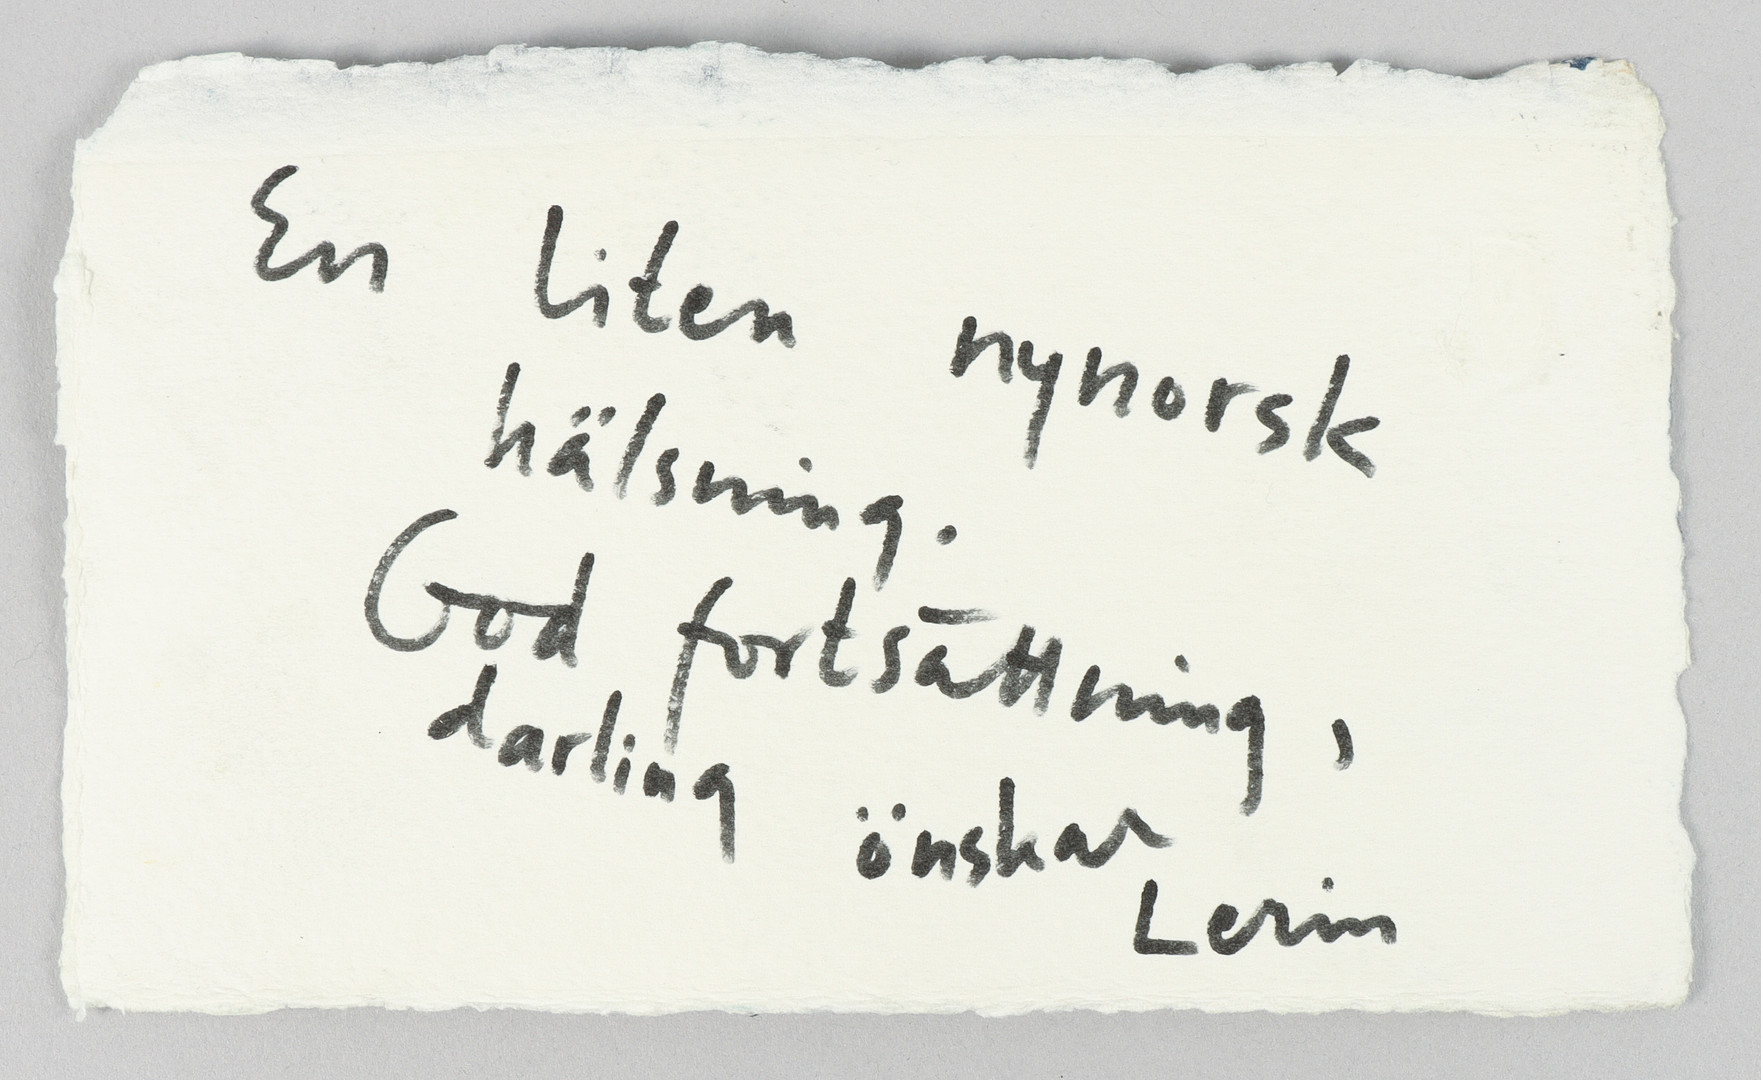 En liten nynorsk
hälsning.
God fortsättning,
darling önskar
Lerin